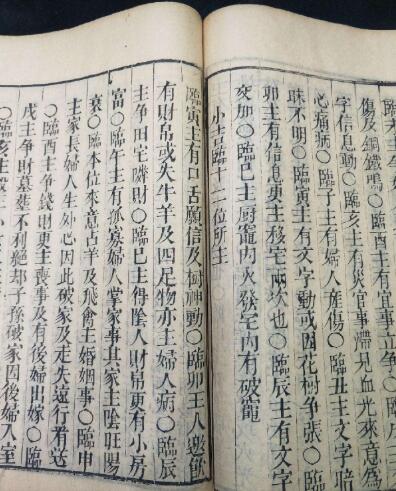 主文字暗
傷及銅鐵鳴○臨酉主有官事立爭○
字信息動○臨亥主有災官事滯見血光來意為
心痛病○臨子主有婦人産傷○臨丑主文字
昧不明○臨寅主有文字動或因花樹爭張○臨
卯主有信息更主移宅兩次也○臨辰主有文字
交加○臨巳主厨竈內火發宅內有破竈
小吉臨十二位所主
臨寅主有口舌願信及樹神動○臨卯主人邀飲
有財帛或失牛羊及四足物亦主婦人病○臨辰
主爭田宅購財○臨巳主得陰人財帛更有小房
富○臨午主有孤寡婦人掌家事其家主陰旺陽
衰○臨本位來意占羊及飛禽主婚姻事○臨申
主家長婦人生外心因此破家及走失遠行看送
○臨酉主爭錢財更主喪事及有後婦出嫁○臨
戌主爭財墓葬不利絕却子孫破家因後婦入室
○臨亥主